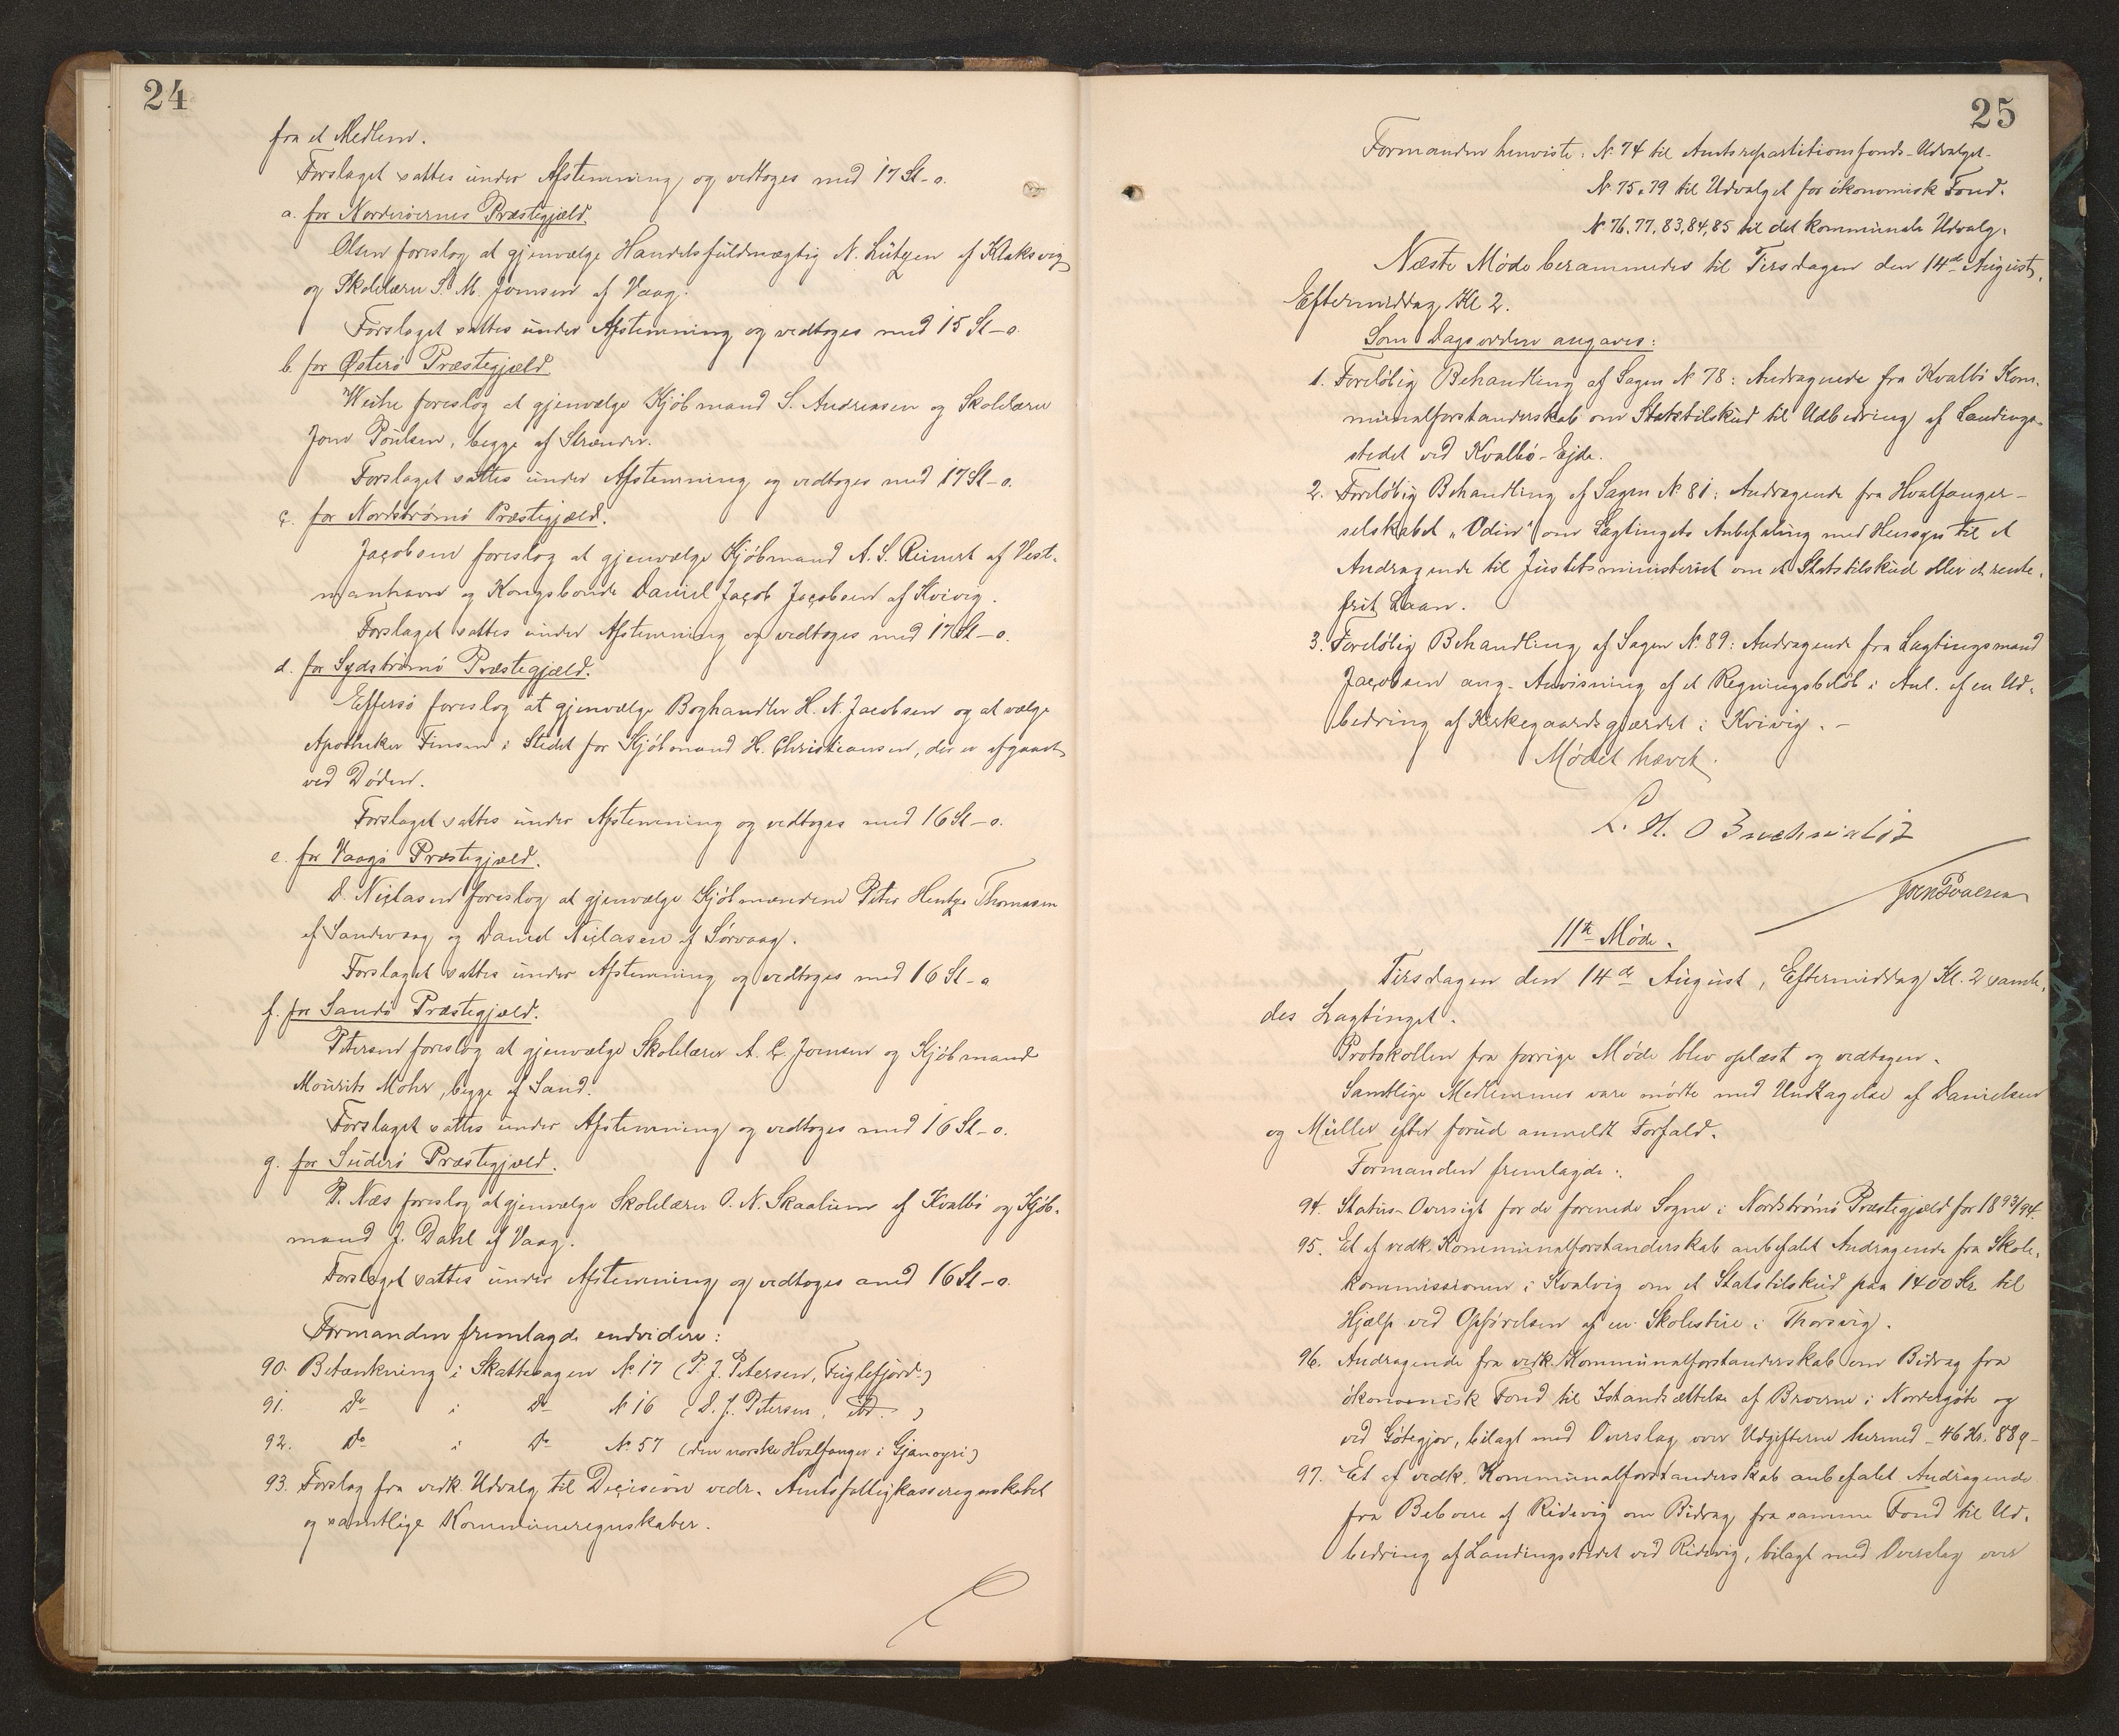 24
fra et Medlem.
Forslaget sattes under Afstemning og vedtoges med 17 St - o.
a. for Norderøernes Præstegjæld.
Olsen foreslog at gjenvælge Handelsfuldmægtig N. Lützen af Klaksvig
og Skolelærer S. M. Joensen af Vaag.
Forslaget sattes under Afstemning og vedtoges med 15 St - o.
b. for Østerø Præstegjæld
Weihe foreslog at gjenvælge Kjöbmand S. Andreasen og Skolelærer
Joen Poulsen, begge af Strænder.
Forslaget sattes under Afstemning og vedtoges med 17 St - o.
c. for Nordstrømø Præstegjæld.
Jacobsen foreslog at gjenvælge Kjöbmand A. S. Reinert af Vest-
manhavn og Kongsbonde Daniel Jacob Jacobsen af Kvivig.
Forslaget sattes under Afstemning og vedtoges med 17 St - o.
d. for Sydstrømø Præstegjæld.
Effersö foreslog at gjenvælge Boghandler H. N. Jacobsen og at vælge
Apotheker Finsen i Stedet for Kjöbmand H. Christiansen, der er afgaaet
ved Döden.
Forslaget sattes under Afstemning og vedtoges med 16 St - o.
e. for Vaagö Præstegjæld.
D. Niclasen foreslog at gjenvælge Kjöbmændene Peter Hentze Thomsen
af Sandevaag og Daniel Niclasen af Sörvaag.
Forslaget sattes under Afstemning og vedtoges med 16 St - o
f. for Sandö Præstegjæld.
Petersen foreslog at gjenvælge Skolelærer A. C. Joensen og Kjöbmand
Mourits Mohr, begge af Sand.
Forslaget sattes under Afstemning og vedtoges med 16 St - o.
g. for Suderö Præstegjæld.
P. Næs foreslog at gjenvælge Skolelærer O. N. Skaalum af Kvalbö og Kjöb-
mand J. Dahl af Vaag.
Forslaget sattes under Afstemning og vedtoges med 16 St - o.
Formanden fremlagde endvidere:
90. Betænkning i Skattesagen № 17 (P. J. Petersen, Fuglefjord)
91. Do i Do № 16 (D. J. Petersen, ibd.)
92. Do i Do № 57 (den norske Hvalfanger i Gjanoyri)
93. Forslag fra vedk. Udvalg til Decision vedr. Amtsfattigkasseregnskabet
og samtlige Kommuneregnskaber.
25
Formanden henviste: № 74 til Amtsrepartitionsfonds-Udvalget.
№ 75 o 79 til Udvalget for økonomisk Fond.
№ 76, 77, 83, 84, 85 til det kommunale Udvalg.
Næste Møde berammedes til Tirsdagen den 14de August,
Eftermiddag Kl 2.
Som Dagsorden angaves:
1. Foreløbig Behandling af Sagen № 78: Andragende fra Kvalbö Kom-
munalforstanderskab om Statstilskud til Udbedring af Landings-
stedet ved Kvalbö-Ejde.
2. Foreløbig Behandling af Sagen № 81: Andragende fra Hvalfanger-
selskabet „Odin“ om Lagtingets Anbefaling med Hensyn til et
Andragende til Justitsministeriet om et Statstilskud eller et rente-
frit Laan.
3. Foreløbig Behandling af Sagen № 89: Andragende fra Lagtingsmand
Jacobsen ang. Anvisning af et Regningsbeløb i Anl. af en Ud-
bedring af Kirkegaardsgjærdet i Kvivig. -
Mødet hævet.
L. H. O Buchwaldt
Joen Poulsen
11te Møde.
Tirsdagen den 14de August, Eftermiddag Kl. 2 samle-
des Lagtinget.
Protokollen fra forrige Møde blev oplæst og vedtagen.
Samtlige Medlemmer vare mødte med Undtagelse af Danielsen
og Müller efter forud anmeldt Forfald.
Formanden fremlagde:
94. Status-Oversigt for de forenede Sogne i Nordstrømö Præstegjæld for 1893/94.
95. Et af vedk. Kommunalforstanderskab anbefalet Andragende fra Skole-
kommissionen i Kvalvig om et Statstilskud paa 1400 Kr. til
Hjælp ved Opførelsen af en Skolestue i Thorsvig.
96. Andragende fra vedk. Kommunalforstanderskab om Bidrag fra
økonomisk Fond til Istandsættelse af Broerne i Nordregöte og
ved Götegjov, bilagt med Overslag over Udgifterne hermed - 46 Kr. 88 ø -
97. Et af vedk. Kommunalforstanderskab anbefalet Andragende
fra Beboere af Ridevig om Bidrag fra samme Fond til Ud-
bedring af Landingsstedet ved Ridevig, bilagt med Overslag over